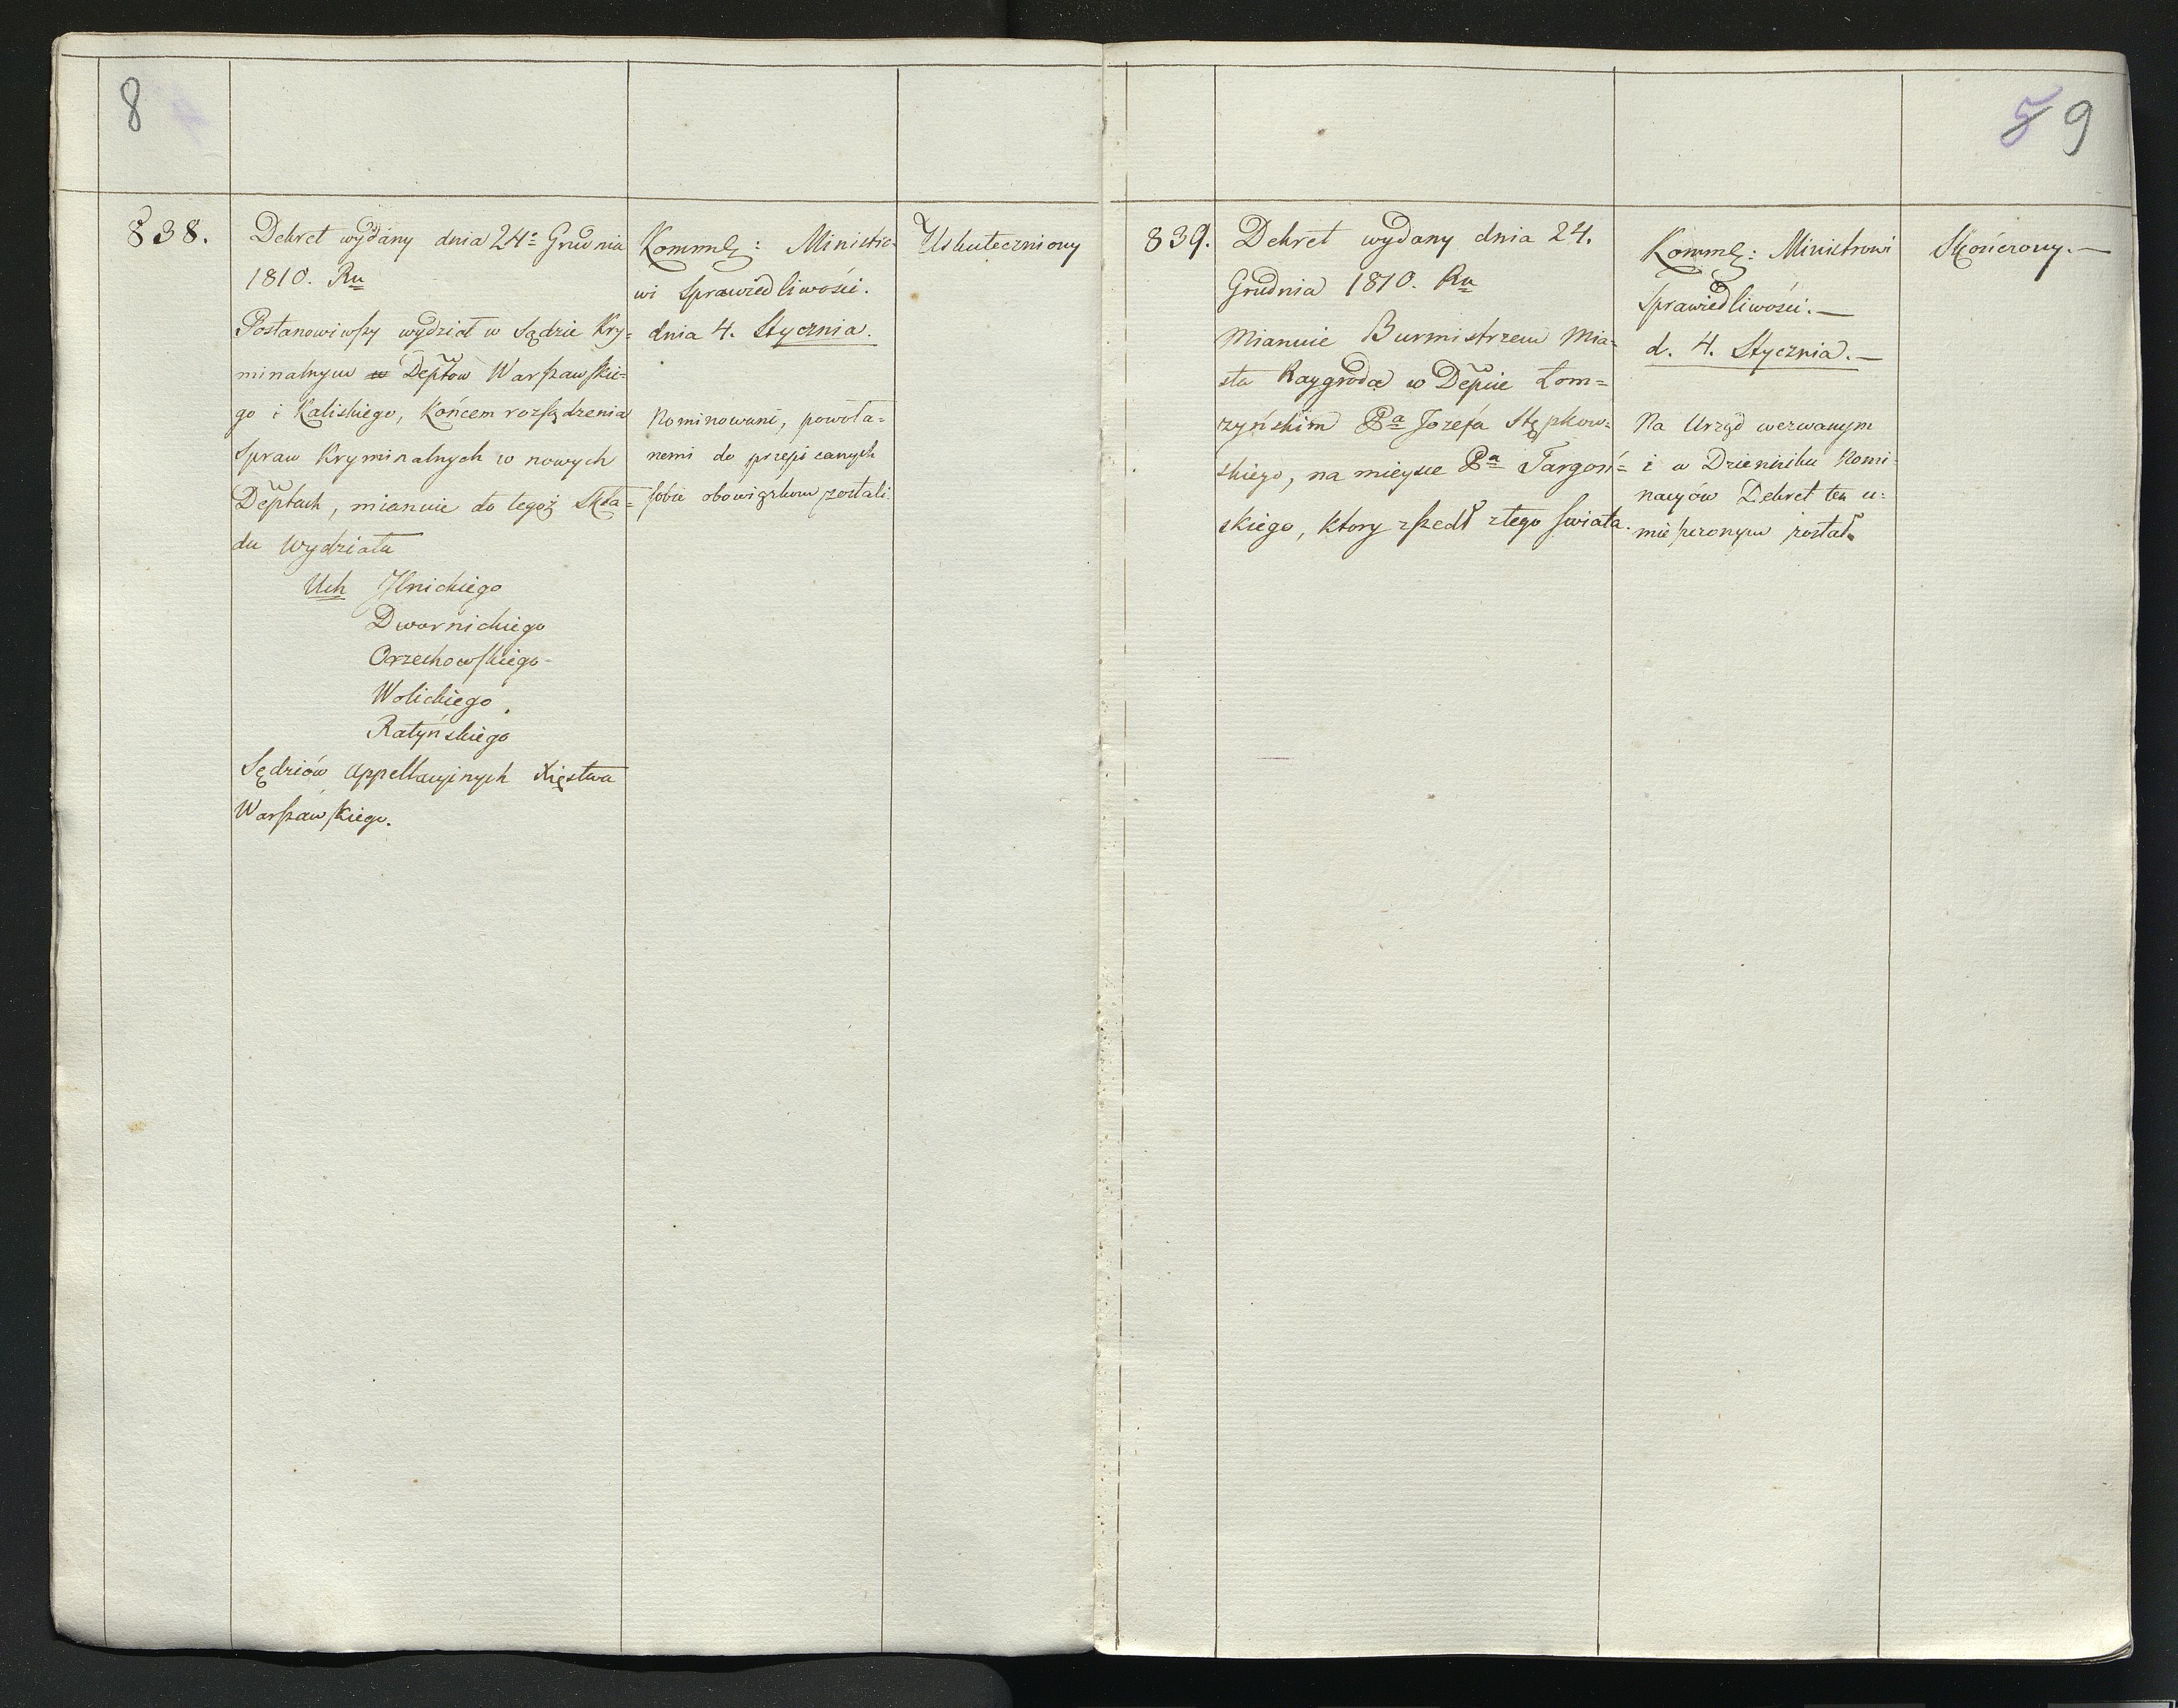 8
838.
Dekret wydany dnia 24º Grudnia
1810. Ru
Postanowiwszy wydział w Sądzie Kry=
minalnym w Deptow Warszawskie=
go i Kaliskiego, Końcem rozsądzenia
Spraw Kryminalnych w nowych
Deptach, mianuie do tegoż Skła=
du Wydziału
Uch Ilnickiego
Dwornickiego
Orzechowskiego
Wolickiego,
Ratyńskiego
Sędziów Appellacyjnych Xięstwa
Warszawskiego.
Kommk: Ministro=
wi Sprawiedliwości.
dnia 4. Stycznia.
Nominowani, powoła=
nemi do przepisanych
sobie obowiązkow zostali.
Uskuteczniony
5 9
839.
Dekret wydany dnia 24.
Grudnia 1810. Ru
Mianuie Burmistrzem Mia=
sta Raygroda w Depcie Łom=
żyńskim Pa Jozefa Stępkow=
skiego, na mieysce Pa Targoń=
skiego, ktory zszedł z tego świata.
Kommk: Ministrowi
Sprawiedliwości. —
d. 4. Stycznia. —
Na Urząd wezwanym
i w Dzienniku Nomi=
nacyów Dekret ten u=
mieszczonym został.
Skończony. —